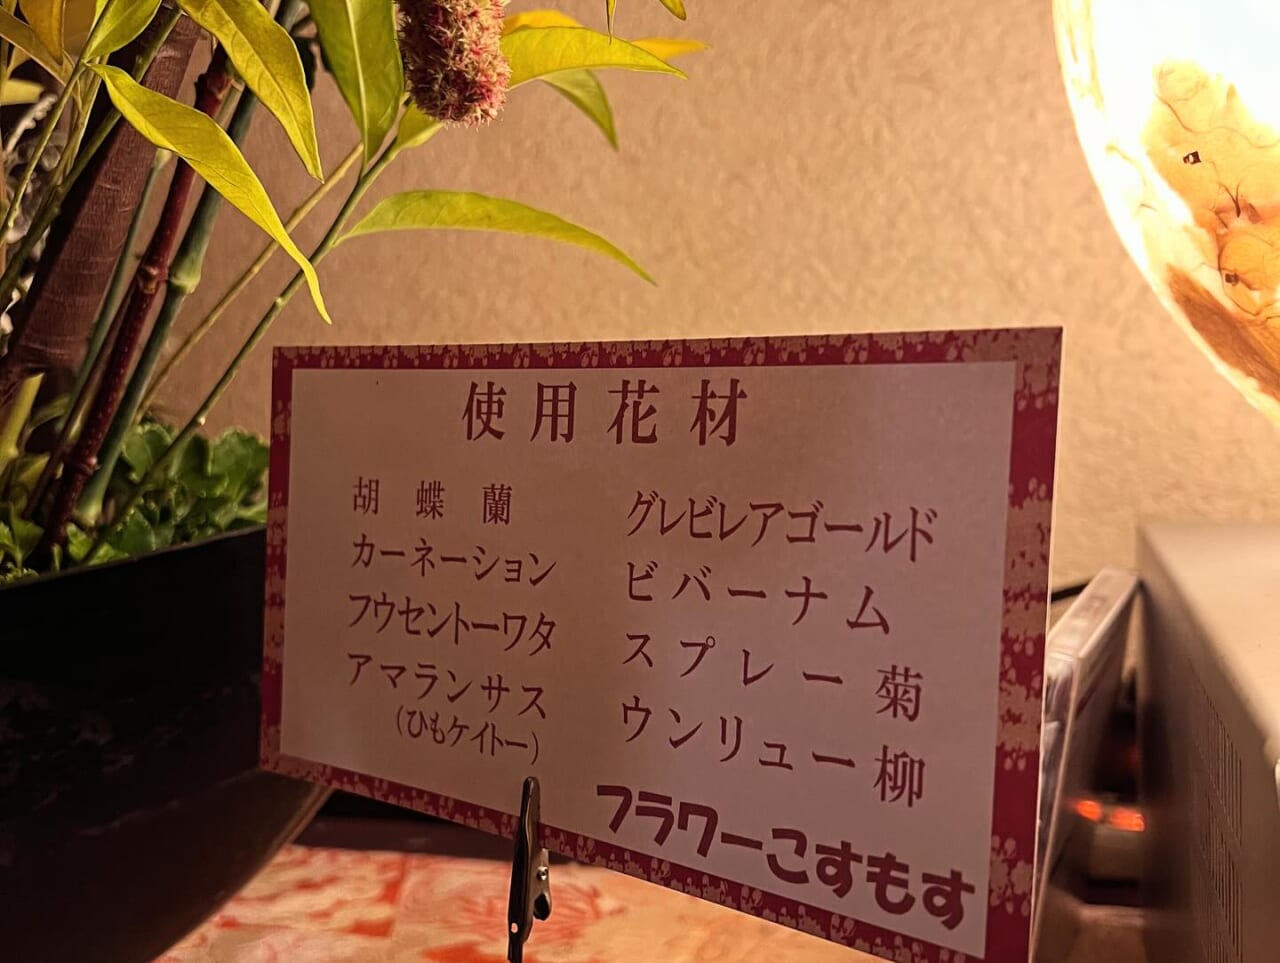 使用花材
胡蝶蘭
カーネーション
フウセントーワタ
アマランサス
(ひもケイトー)
グレビレアゴールド
ビバーナム
スプレー菊
ウンリュー柳
フラワーこすもす